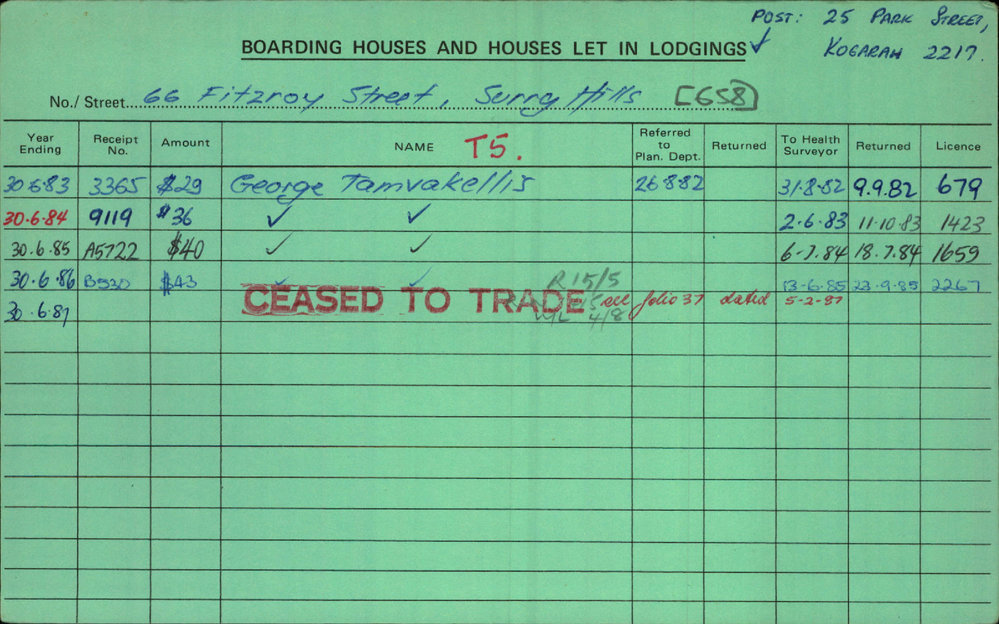 POST: 25 PARK STREET,
KOGARAH 2217.
BOARDING HOUSES AND HOUSES LET IN LODGINGS ✓
No./ Street 66 Fitzroy Street, Surry Hills [658]
Year Ending Receipt No. Amount NAME T5. Referred to Plan. Dept. Returned To Health Surveyor Returned Licence
30.6.83 3365 $29 George Tamvakellis 26.8.82 31.8.82 9.9.82 679
30.6.84 9119 $36 ✓ ✓ 2.6.83 11.10.83 1423
30.6.85 A5722 $40 ✓ ✓ 6-7.84 18.7.84 1659
30.6.86 B530 $43 ✓ ✓ R 15/5 13-6.85 23.9.85 2267
30.6.87 CEASED TO TRADE see folio 37 dated 5-2-87
4/8